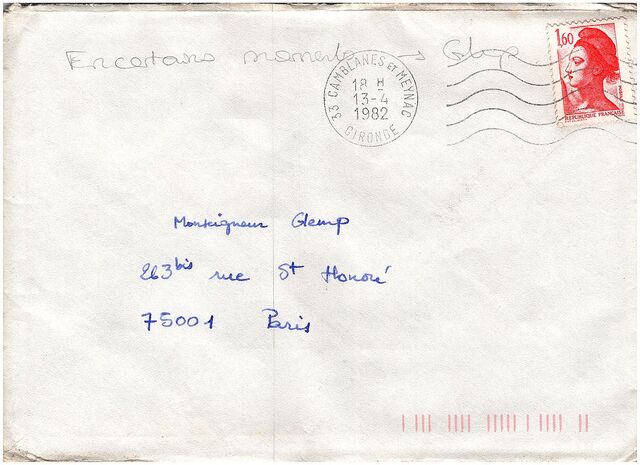 1,60
REPUBLIQUE FRANÇAISE
En certains moments → Glemp
33 CAMBLANES ET MEYNAC
18 H
13-4
1982
GIRONDE
Monseigneur Glemp
263bis rue St Honoré
75001 Paris